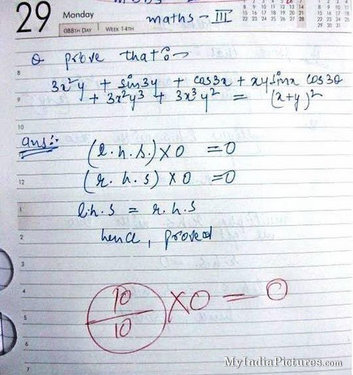 29 Monday
maths - III
088th DAY WEEK 14TH
Q prove that :-
3x²y + sin3y + cos3x + xy sinx cos3θ
+ 3x²y³ + 3x³y² = (x+y)²
ans:-
(l.h.s.) X 0 = 0
(r.h.s) X 0 = 0
l.h.s = r.h.s
hence, proved
10/10 X 0 = 0
MyIndiaPictures.com